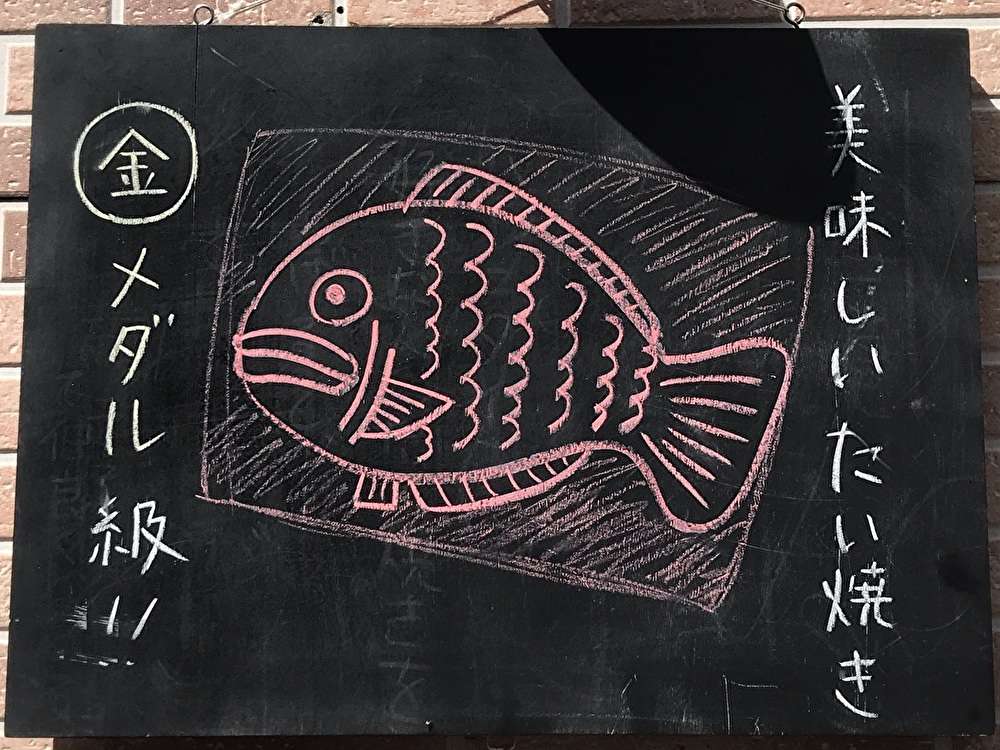 美味しいたい焼き
金メダル級!!